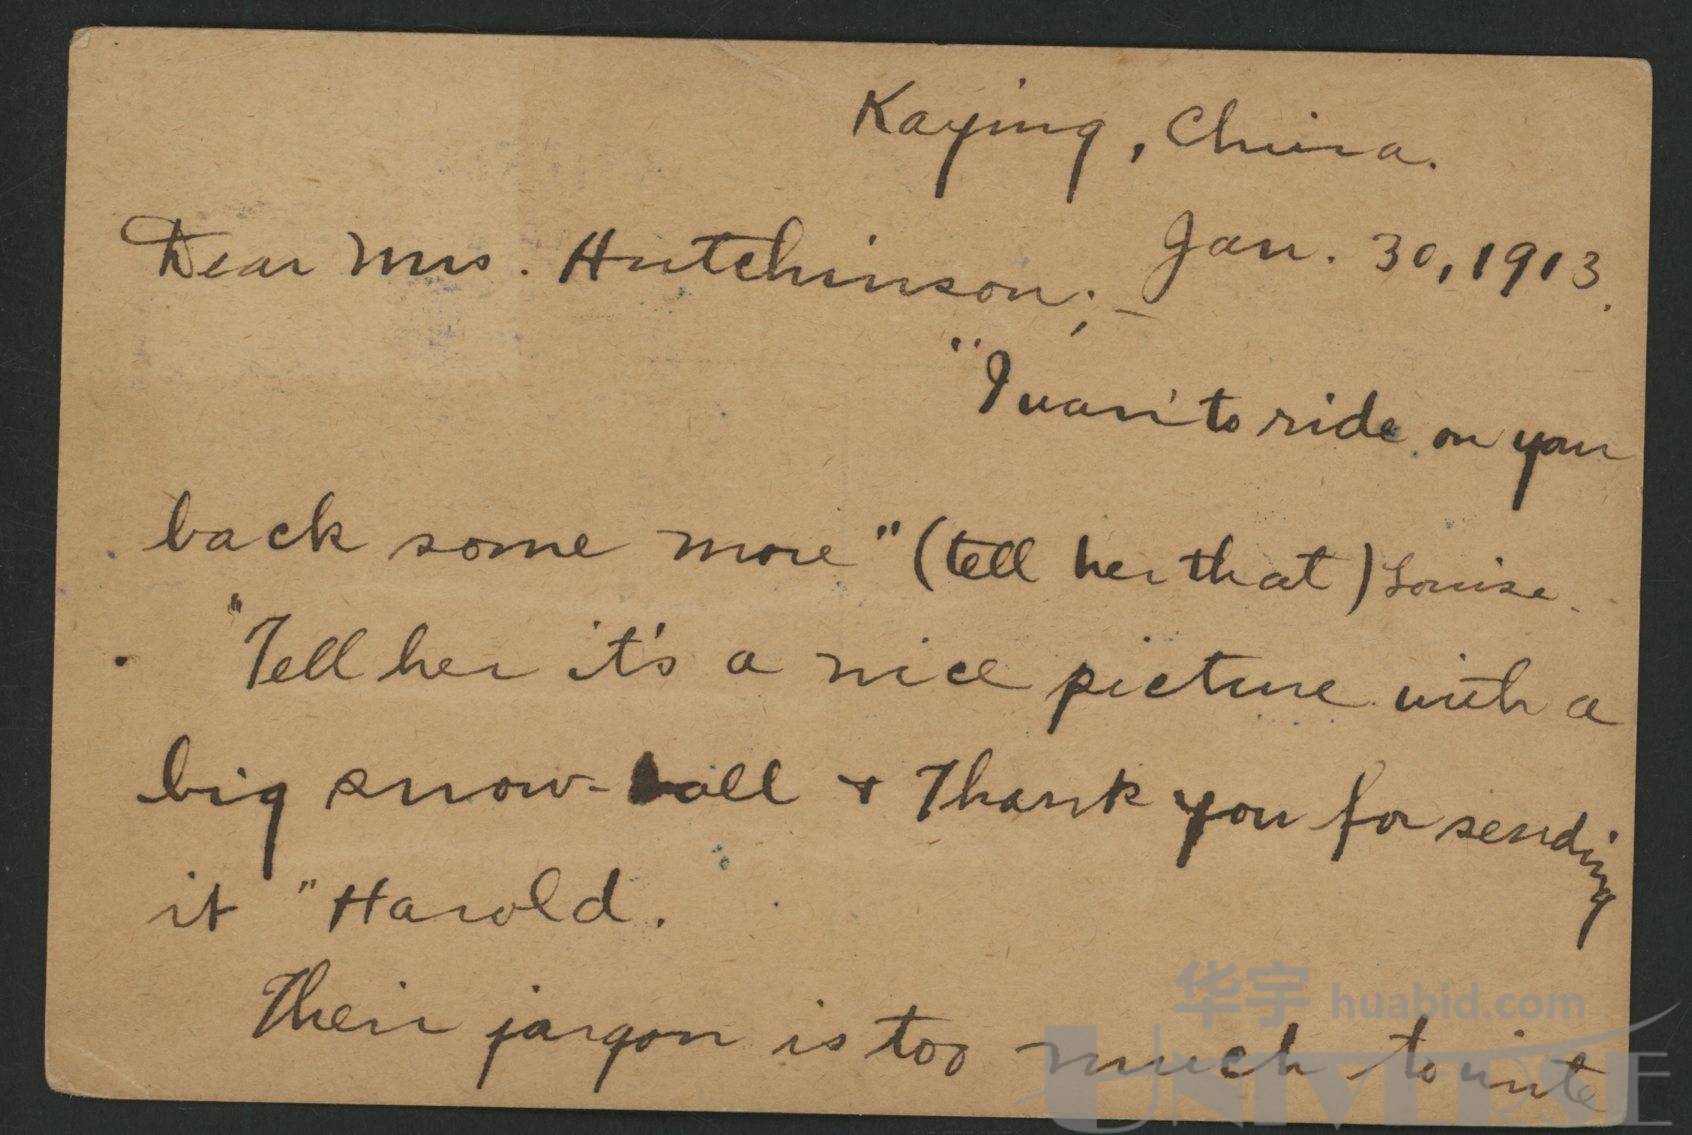 Kaying, China.
Jan. 30, 1913.
Dear Mrs. Hutchinson;—
"I wan' to ride on your
back some more" (tell her that) Louise.
"Tell her it's a nice picture with a
big snow-ball & Thank you for sending
it" Harold.
Their jargon is too much to write
华宇 huabid.com
UNIVERSE